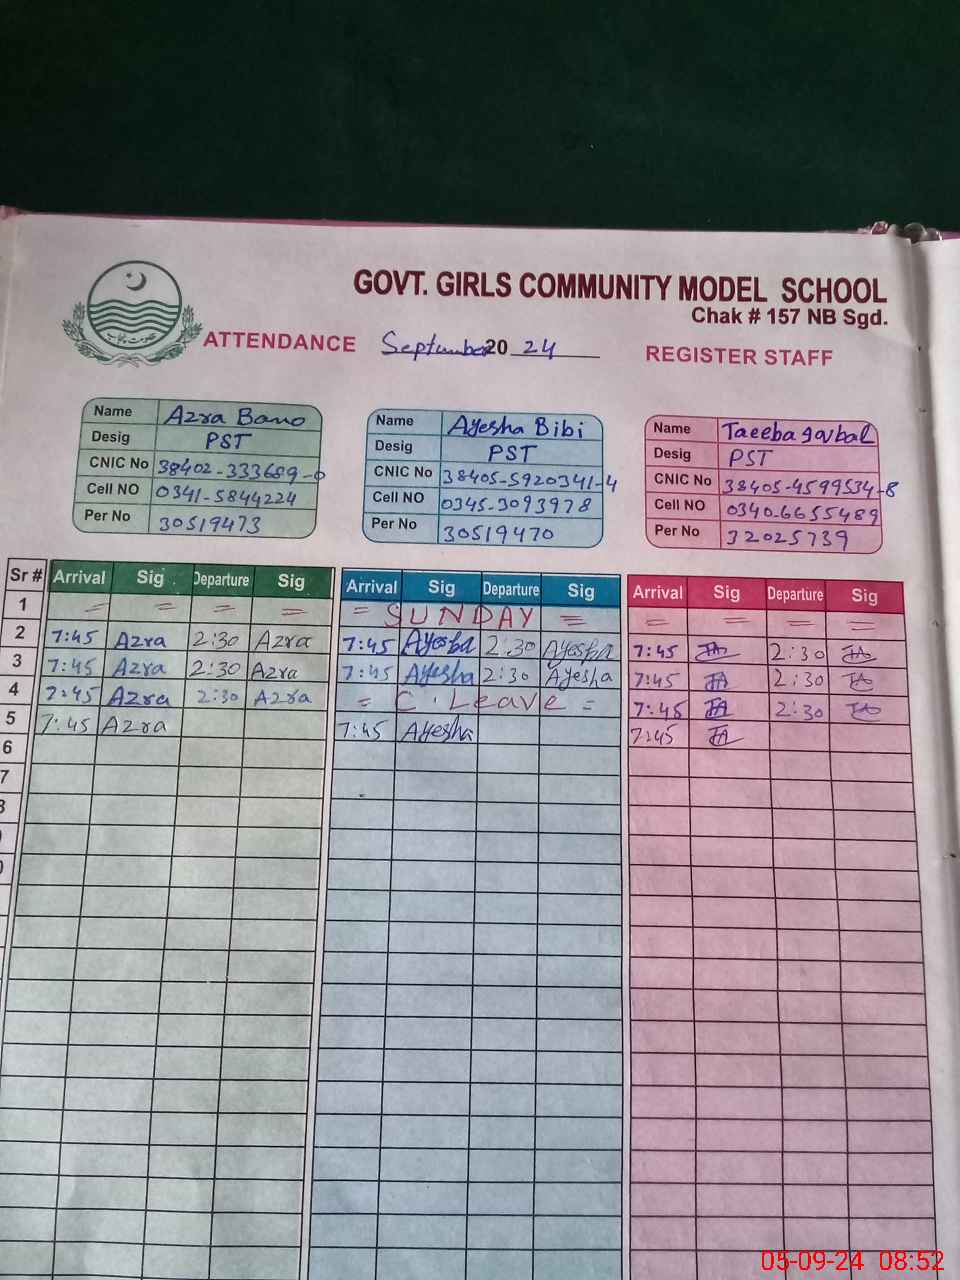 GOVT. GIRLS COMMUNITY MODEL SCHOOL
Chak # 157 NB Sgd.
ATTENDANCE September 2024 REGISTER STAFF
Name Azra Bano
Desig PST
CNIC No 38402-333689-0
Cell NO 0341-5844224
Per No 30519473
Name Ayesha Bibi
Desig PST
CNIC No 38405-5920341-4
Cell NO 0345-3093978
Per No 30519470
Name Taeeba
Desig PST
CNIC No 38405-4599534-8
Cell NO 0340-6655489
Per No 32025739
Sr # Arrival Sig Departure Sig Arrival Sig Departure Sig Arrival Sig Departure Sig
1 = = = = = SUNDAY = = = = =
2 7:45 Azra 2:30 Azra 7:45 Ayesha 2:30 Ayesha 7:45 2:30
3 7:45 Azra 2:30 Azra 7:45 Ayesha 2:30 Ayesha 7:45 2:30
4 7:45 Azra 2:30 Azra = C. Leave = 7:45 2:30
5 7:45 Azra 7:45 Ayesha 7:45
6
7
8
05-09-24 08:52